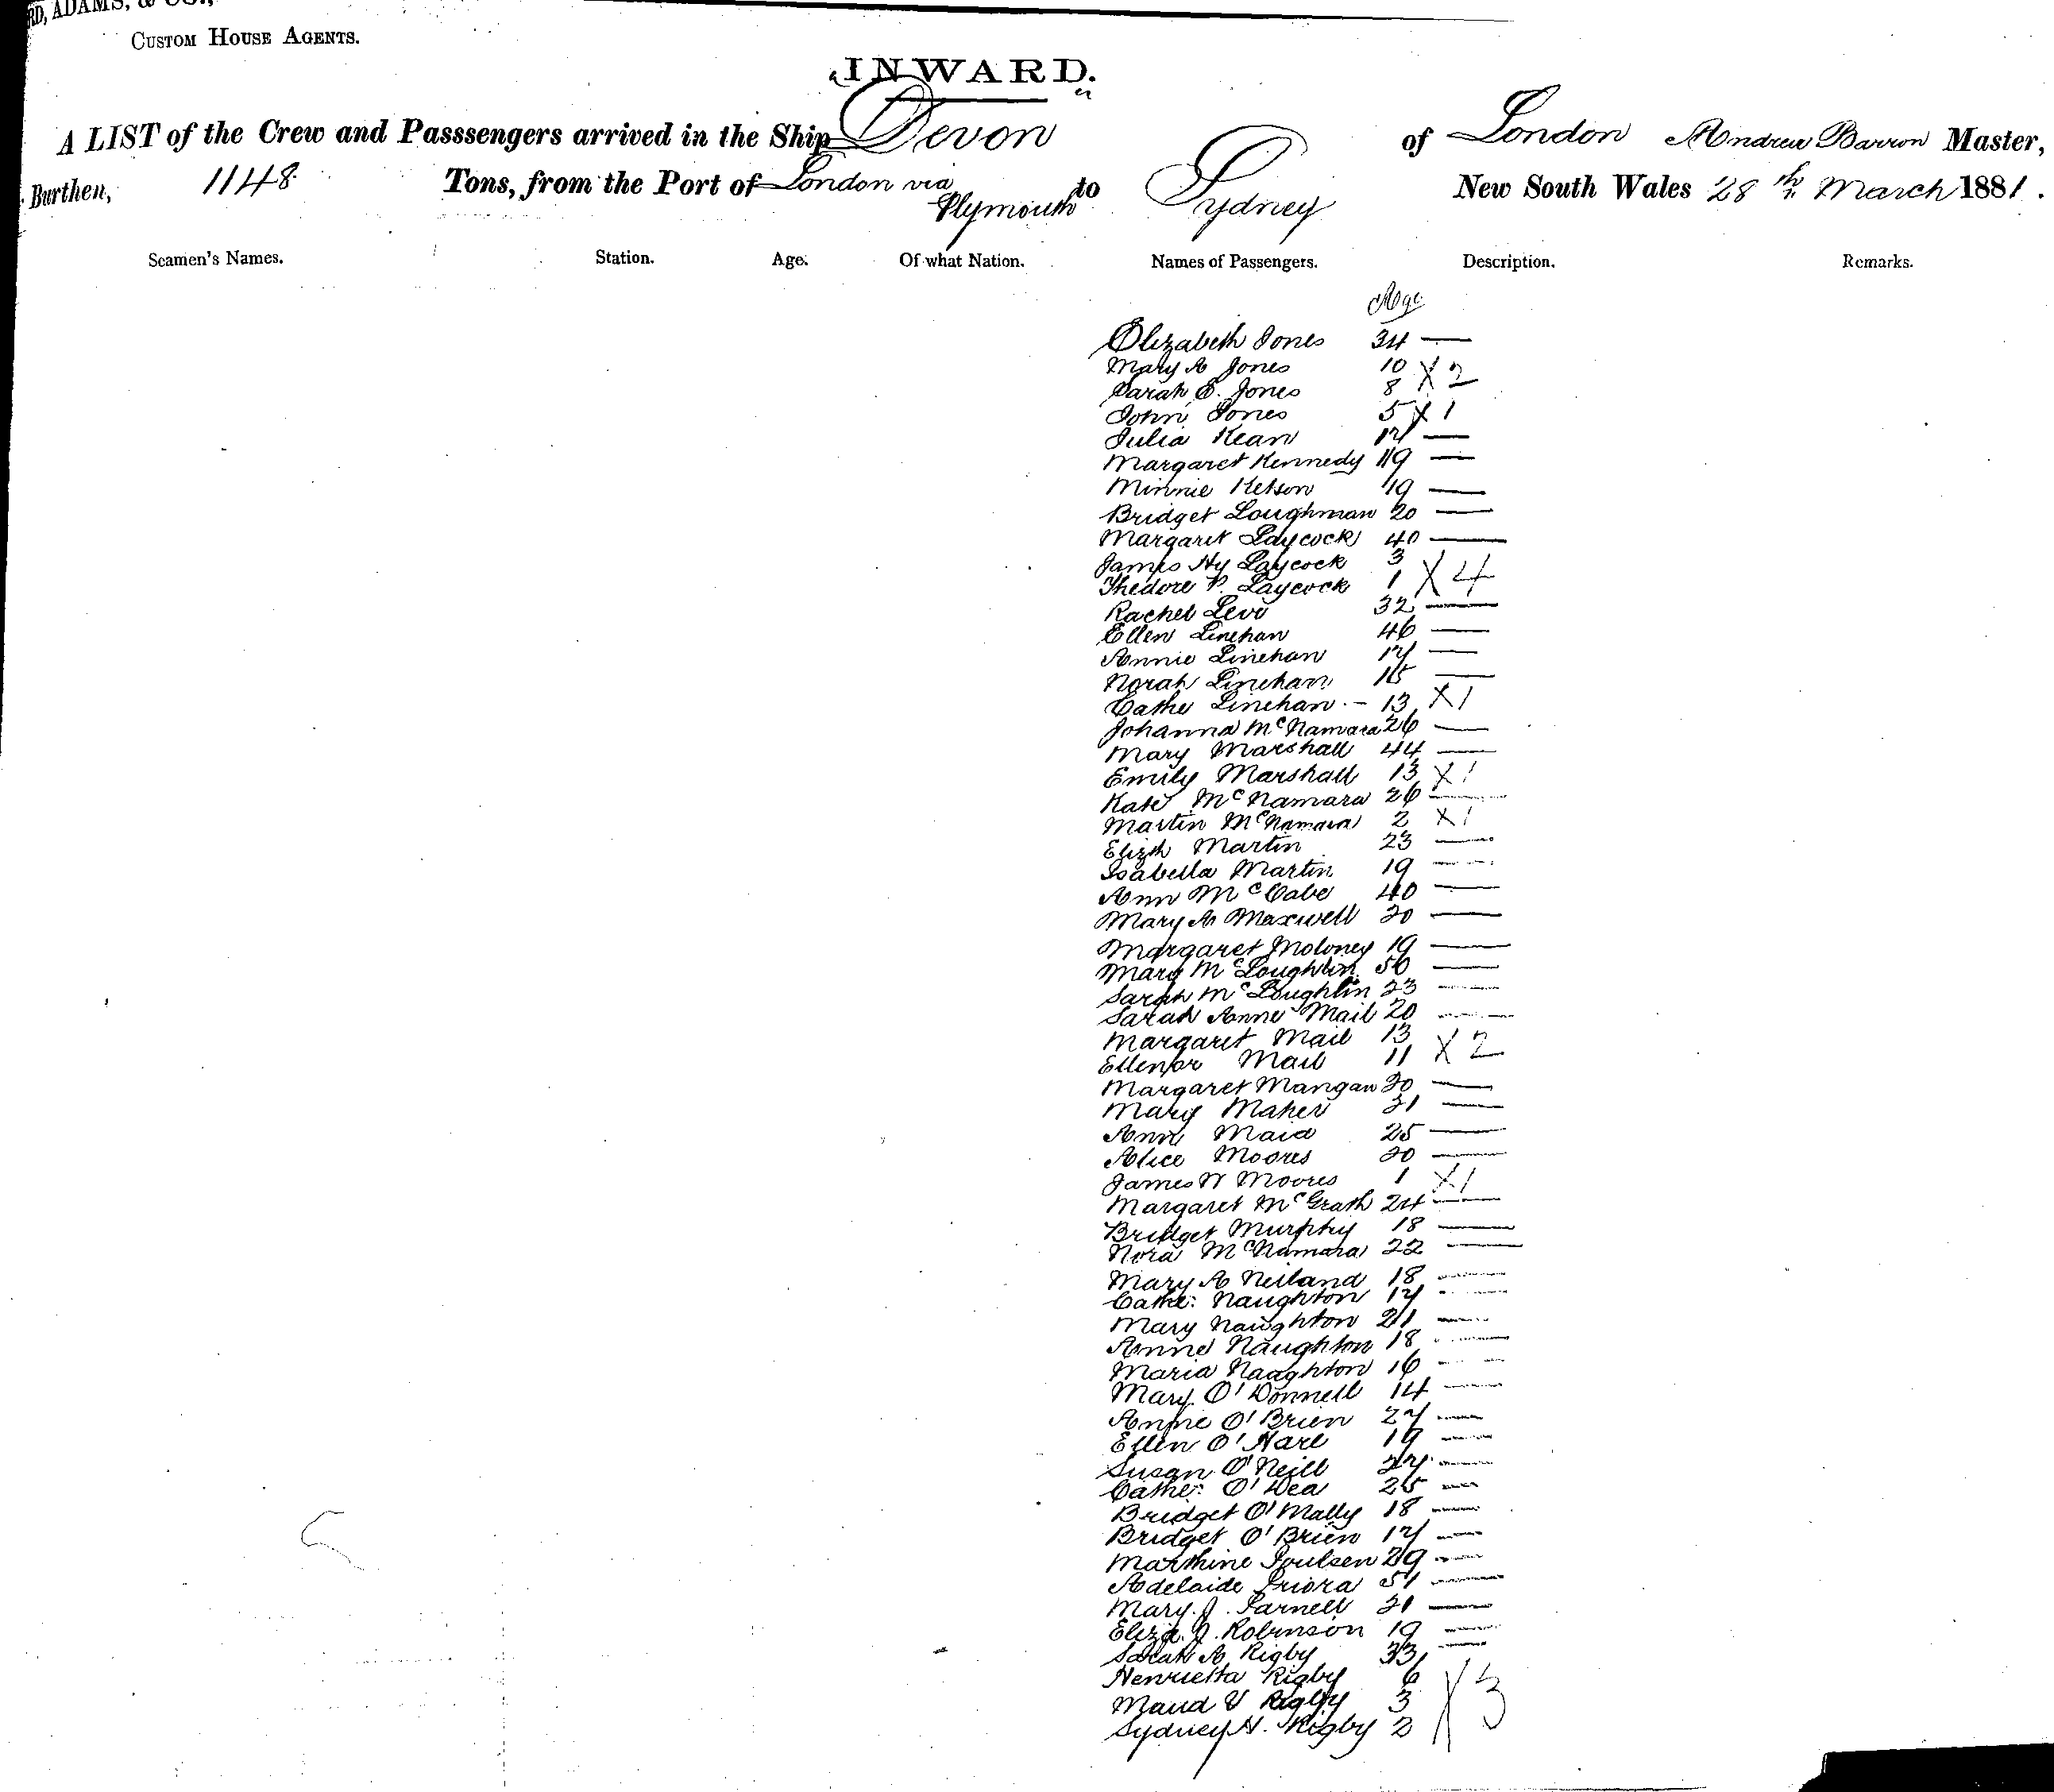 RD, ADAMS, & CO.,
CUSTOM HOUSE AGENTS.
INWARD.
A LIST of the Crew and Passsengers arrived in the Ship Devon of London Andrew Barron Master,
Burthen, 1148 Tons, from the Port of London via Plymouth to Sydney New South Wales 28th March 1881.
Seamen's Names. Station. Age. Of what Nation. Names of Passengers. Description. Remarks.
Age
Elizabeth Jones 34 —
Mary A Jones 10
Sarah E. Jones 8 X 2
John Jones 5 X 1
Julia Kean 17 —
Margaret Kennedy 19 —
Minnie Kelson 19 —
Bridget Loughman 20 —
Margaret Laycock 40 —
James Hy Laycock 3
Thedore P. Laycock 1 X 4
Rachel Levi 32 —
Ellen Linehan 46 —
Annie Linehan 17 —
Norah Linehan 15 —
Cathe Linehan - 13 X 1
Johanna McNamara 26 —
Mary Marshall 44 —
Emily Marshall 13 X 1
Kate McNamara 26 —
Martin McNamara 2 X 1
Elizth Martin 23 —
Isabella Martin 19 —
Ann McCabe 40 —
Mary A Maxwell 20 —
Margaret Moloney 19 —
Mary McLoughlin 50 —
Sarah McLoughlin 23 —
Sarah Anne Mail 20 —
Margaret Mail 13
Ellenor Mail 11 X 2
Margaret Mangan 20 —
Mary Maher 21 —
Ann Maid 25 —
Alice Moores 20 —
James W Moores 1 X 1
Margaret McGrath 24 —
Bridget Murphy 18 —
Nora McNamara 22 —
Mary A Neiland 18 —
Cathe: Naughton 17 —
Mary Naughton 21 —
Anne Naughton 18 —
Maria Naughton 16 —
Mary O'Donnell 14 —
Annie O'Brien 27 —
Ellen O'Hare 19 —
Susan O'Neill 27 —
Cather: O'Dea 25 —
Bridget O'Mally 18 —
Bridget O'Brien 17 —
Marthine Poulsen 29 —
Adelaide Priora 51 —
Mary. J. Parnell 21 —
Eliza. J. Robinson 19 —
Sarah A Rigby 33 —
Henrietta Rigby 6
Maud V Rigby 3 X 3
Sydney H. Rigby 2